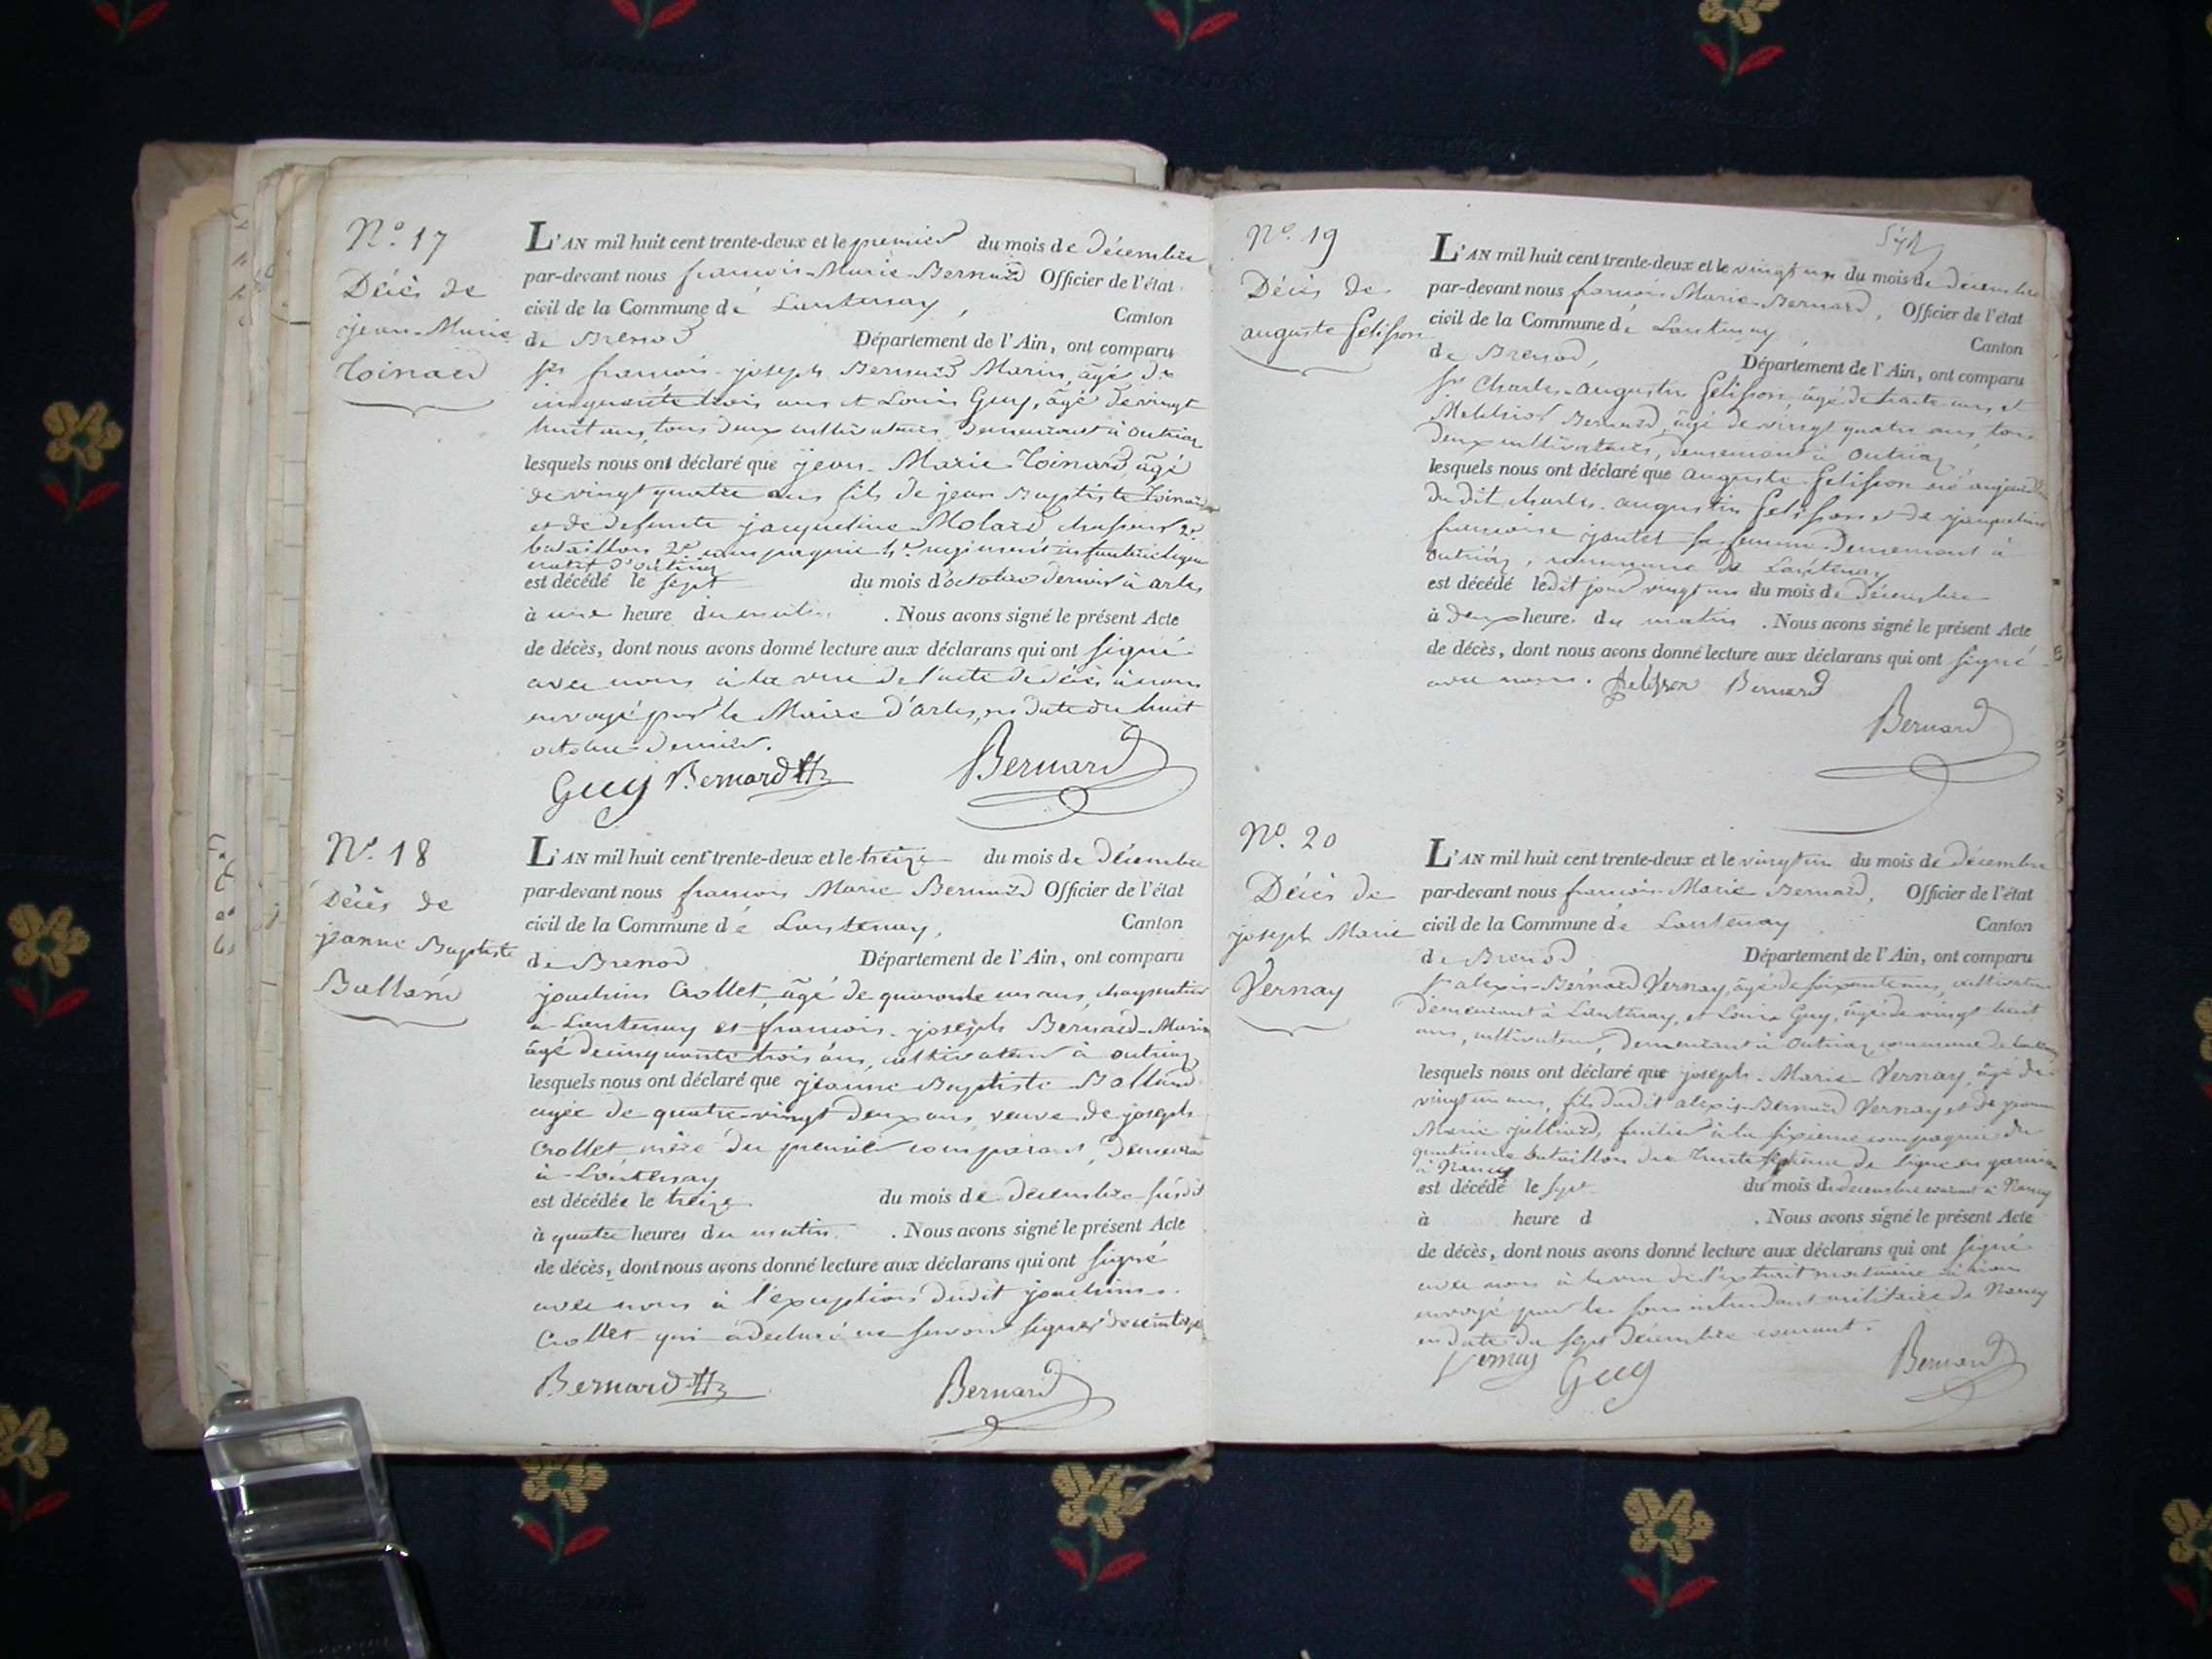 N.º 17
Décès de
jean-Marie
Toinard
L'AN mil huit cent trente-deux et le premier du mois de décembre
par-devant nous francois-Marie-Bernard Officier de l'état
civil de la Commune de Lantenay, Canton
de Brenod Département de l'Ain, ont comparu
Srs francois-joseph Bernard Marin, âgé de
cinquante trois ans et Louis Guy, âgé de vingt
huit ans, tous deux cultivateurs demeurant à outriaz
lesquels nous ont déclaré que jean-Marie Toinard âgé
de vingt quatre ans fils de jean Baptiste Toinard
et de defunte jacqueline Molard chasseur 2e
bataillon 2e compagnie regiment infanterie legere
natif d'outriaz
est décédé le sept du mois d'octobre dernier à arles
à une heure du matin. Nous avons signé le présent Acte
de décès, dont nous avons donné lecture aux déclarans qui ont signé
avec nous à la vue de l'acte de décès à nous
envoyé par le Maire d'arles, en date du huit
octobre dernier.
Guy Bernard Bernard
N.º 18
Décès de
jeanne Baptiste
Balland
L'AN mil huit cent trente-deux et le treize du mois de décembre
par-devant nous francois Marie Bernard Officier de l'état
civil de la Commune de Lantenay, Canton
de Brenod Département de l'Ain, ont comparu
joachim Crollet, âgé de quarante un ans, charpentier
à Lantenay et francois-joseph Bernard-Marin
âgé de cinquante trois ans, cultivateur à outriaz
lesquels nous ont déclaré que jeanne Baptiste Balland
agée de quatre-vingt deux ans, veuve de joseph
Crollet mère du premier comparant, demeurant
à Lantenay
est décédée le treize du mois de décembre susdit
à quatre heures du matin. Nous avons signé le présent Acte
de décès, dont nous avons donné lecture aux déclarans qui ont signé
avec nous à l'exception dudit joachim
Crollet qui a declaré ne savoir signer
Bernard Bernard
N.º 19
Décès de
auguste felisson
L'AN mil huit cent trente-deux et le vingt un du mois de decembre
par-devant nous francois Marie-Bernard, Officier de l'état
civil de la Commune de Lantenay, Canton
de Brenod, Département de l'Ain, ont comparu
Sr Charles-augustin felisson, âgé de trente ans, et
Melchior Bernard, âgé de vingt quatre ans, tous
deux cultivateurs, demeurant à outriaz,
lesquels nous ont déclaré que auguste felisson né aujourd'hui
du dit charles-augustin felisson et de jacqueline
francoise jantet sa femme demeurant à
outriaz, commune de Lantenay
est décédé ledit jour vingt un du mois de décembre
à deux heures du matin. Nous avons signé le présent Acte
de décès, dont nous avons donné lecture aux déclarans qui ont signé
avec nous. felisson Bernard
Bernard
N.º 20
Décès de
joseph Marie
Vernay
L'AN mil huit cent trente-deux et le vingt un du mois de décembre
par-devant nous francois-Marie Bernard, Officier de l'état
civil de la Commune de Lantenay Canton
de Brenod Département de l'Ain, ont comparu
Sr alexis-Bernard Vernay, âgé de soixante ans, cultivateur
demeurant à Lantenay, et Louis Guy, âgé de vingt huit
ans, cultivateur, demeurant à outriaz commune de Lantenay
lesquels nous ont déclaré que joseph-Marie Vernay, âgé de
vingt un ans, fils dudit alexis-Bernard Vernay et de jeanne
Marie julliard, fusilier à la sixieme compagnie du
quatrieme bataillon du trente septieme de ligne en garnison
à Nancy
est décédé le sept du mois de decembre courant à Nancy
à heure d . Nous avons signé le présent Acte
de décès, dont nous avons donné lecture aux déclarans qui ont signé
avec nous à la vue de l'extrait mortuaire à nous
envoyé par le sous intendant militaire de Nancy
en date du sept décembre courant.
Vernay Guy Bernard